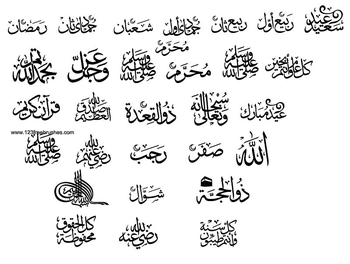 سعيد عيد ربيع أول ربيع ثان جمادى أول شعبان جمادى ثان رمضان
كل عام وأنتم بخير صلى الله عليه وسلم محرم محرم صلى الله عليه وسلم عز وجل بحمد الله تم
عيد مبارك سبحانه وتعالى ذو القعدة القرآن الكريم
www.123freebrushes.com
الله صفر رجب رضي الله عنهم صلى الله عليه وسلم
ذو الحجة شوال
كل سنة وأنتم طيبون رضي الله عنه كل الحقوق محفوظة